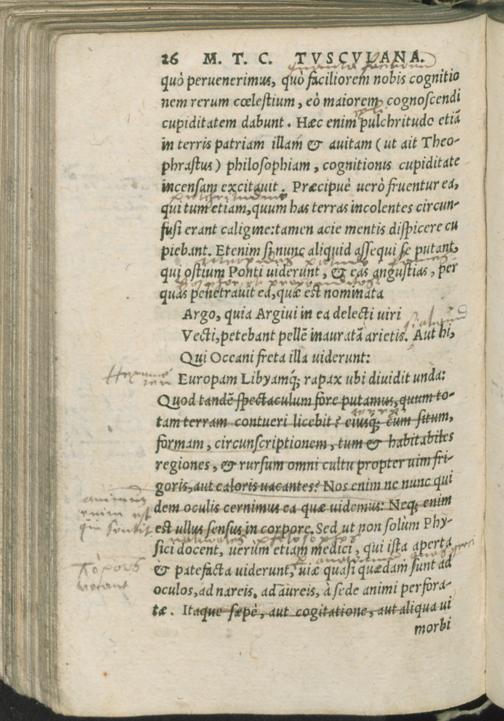 26 M. T. C. TVSCVLANA.
quò peruenerimus, quò faciliorem nobis cognitio
nem rerum cœlestium, eò maiorem cognoscendi
cupiditatem dabunt. Hæc enim pulchritudo etiã
in terris patriam illam & auitam (ut ait Theo-
phrastus) philosophiam, cognitionis cupiditate
incensam excitauit. Præcipuè uerò fruentur ea,
qui tum etiam, quum has terras incolentes circun-
fusi erant caligine: tamen acie mentis dispicere cu
piebant. Etenim si nunc aliquid assequi se putant,
qui ostium Ponti uiderunt, & eas angustias, per
quas penetrauit ea, quæ est nominata
Argo, quia Argiui in ea delecti uiri
Vecti, petebant pellẽ inauratã arietis. Aut hi,
Qui Oceani freta illa uiderunt:
Europam Libyamq́; rapax ubi diuidit unda:
Quod tandẽ spectaculum fore putamus, quum to-
tam terram contueri licebit? eiusq́; cum situm,
formam, circunscriptionem, tum & habitabiles
regiones, & rursum omni cultu propter uim fri-
goris, aut caloris uacantes? Nos enim ne nunc qui
dem oculis cernimus ea quæ uidemus: Neq; enim
est ullus sensus in corpore. Sed ut non solùm Phy-
sici docent, uerùm etiam medici, qui ista aperta
& patefacta uiderunt, uiæ quasi quædam sunt ad
oculos, ad nareis, ad aureis, à sede animi perfora-
tæ. Itaque sæpè, aut cogitatione, aut aliqua ui
morbi
animus
enim est
qui sentit
πόρους
uocant